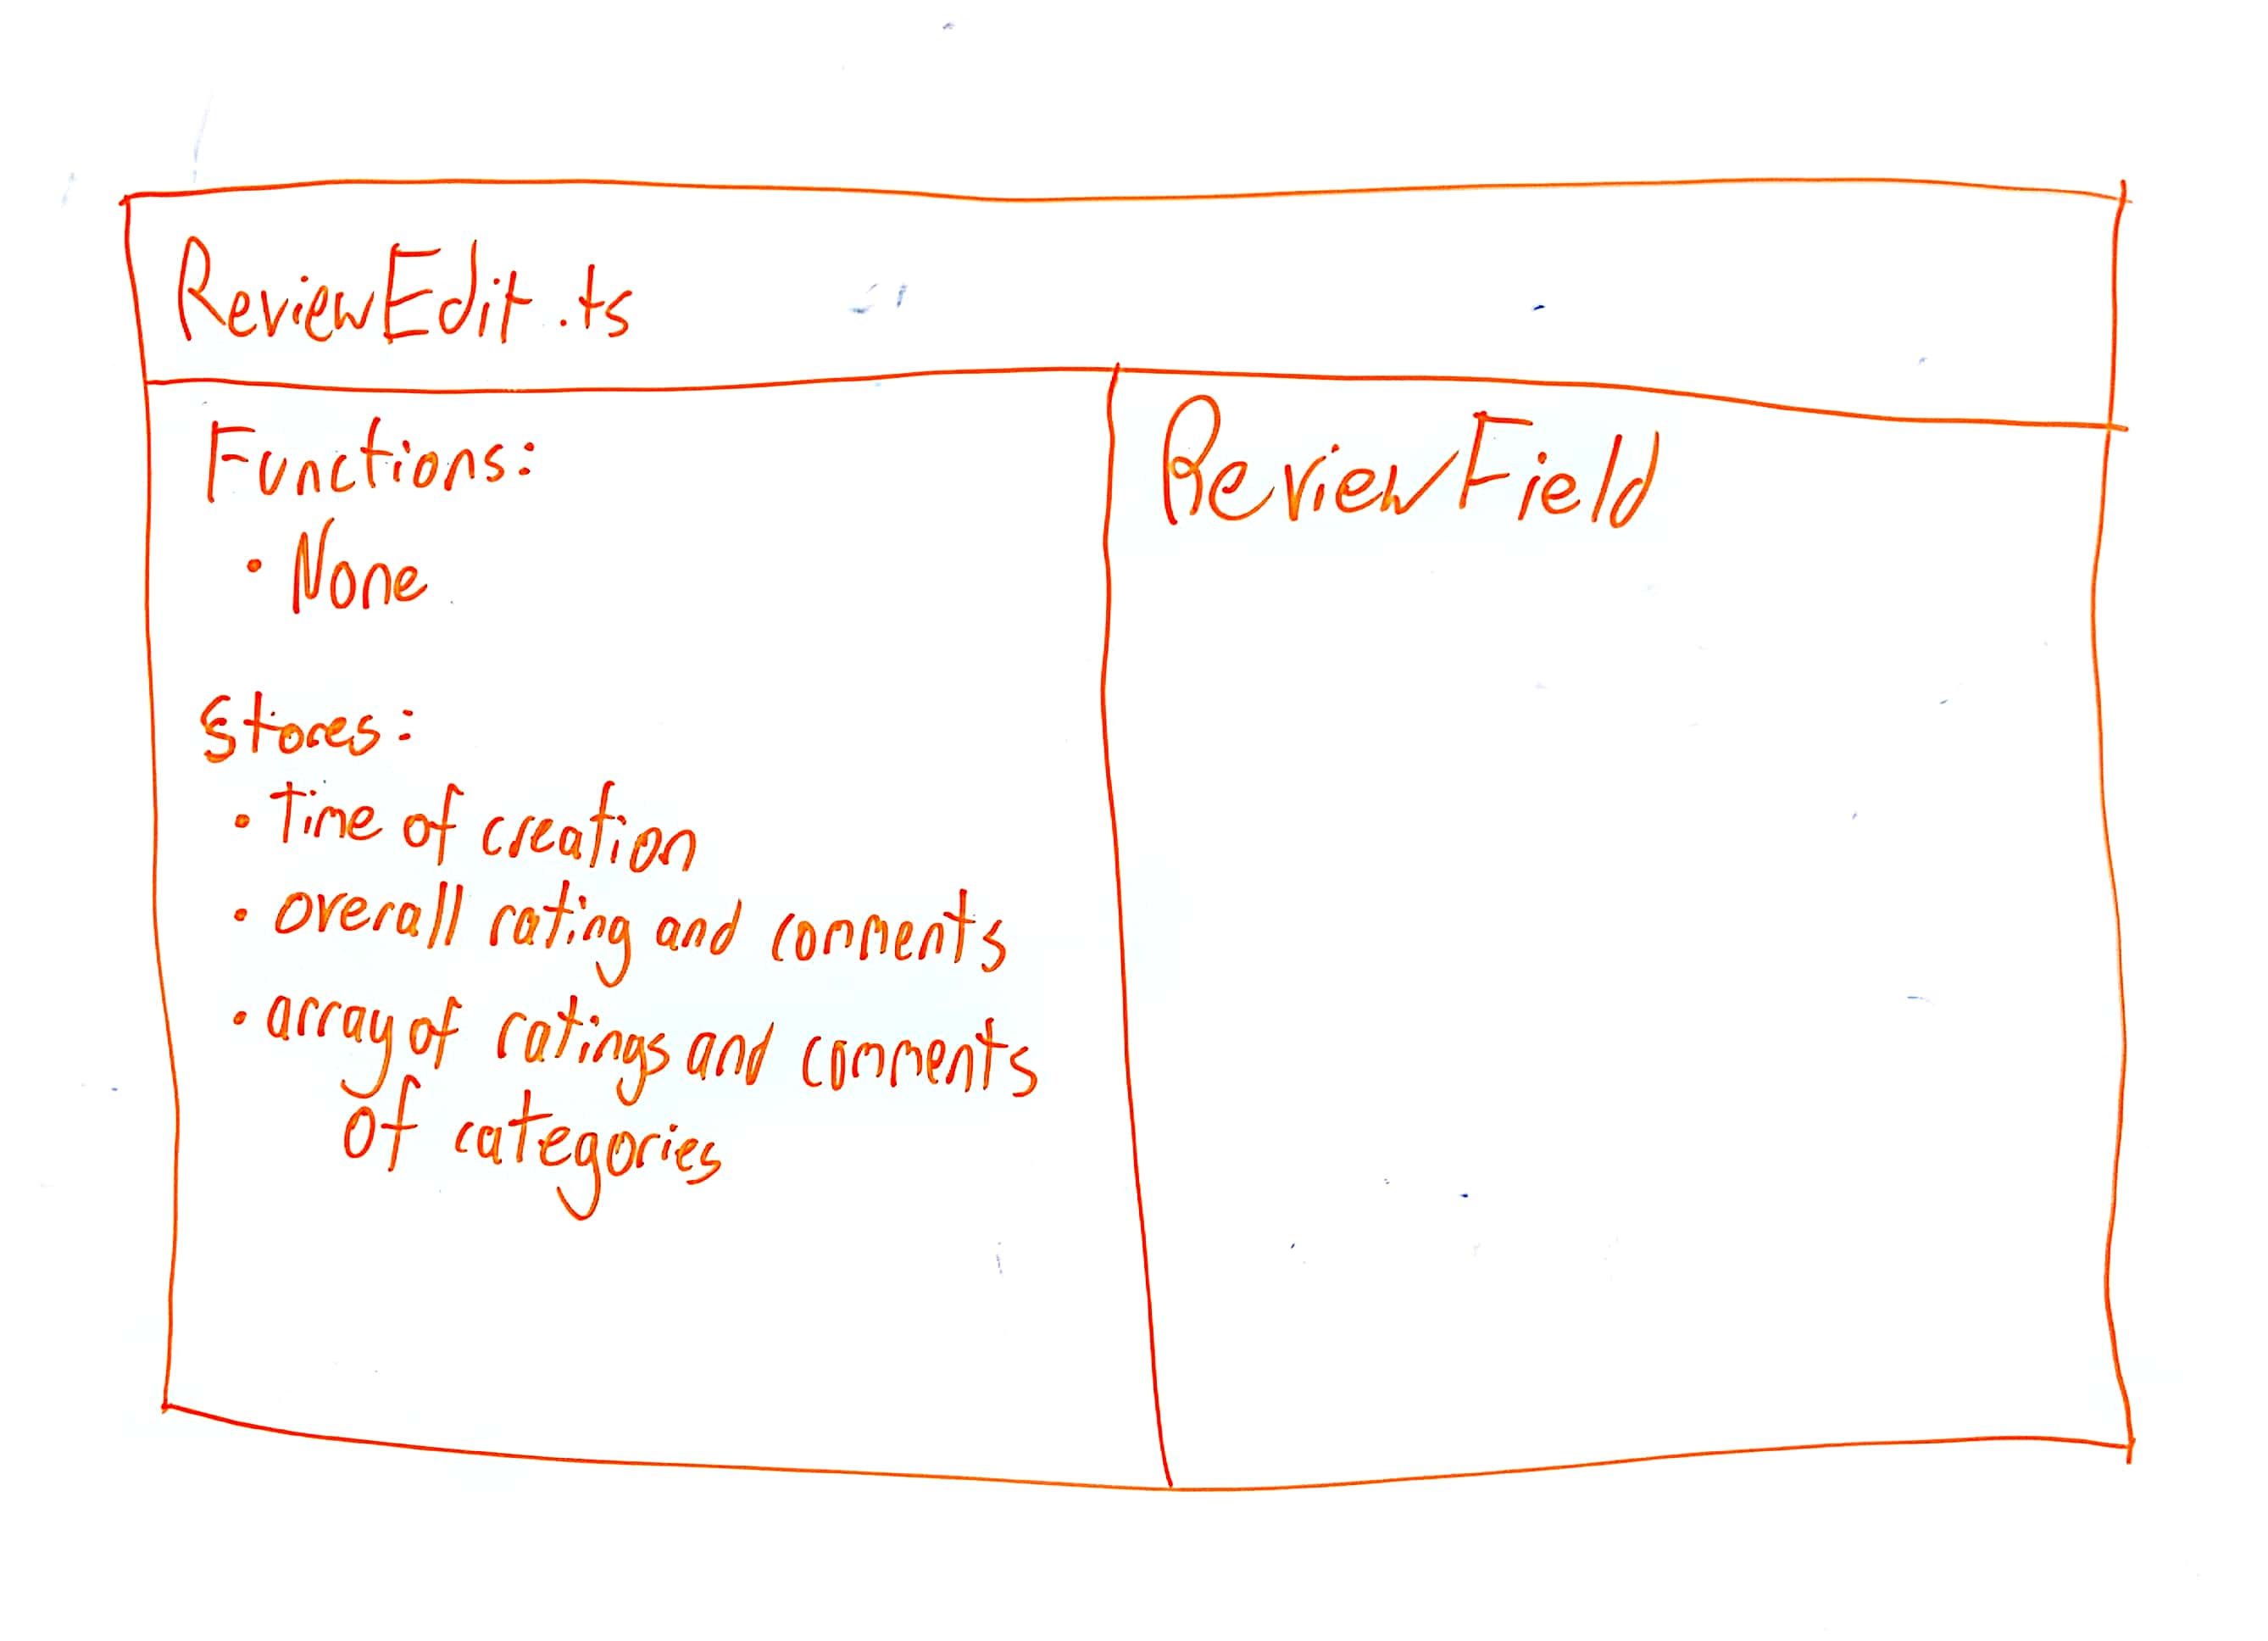 ReviewEdit.ts
Functions:
• None
Stores:
• Time of creation
• overall rating and comments
• array of ratings and comments
of categories
ReviewField